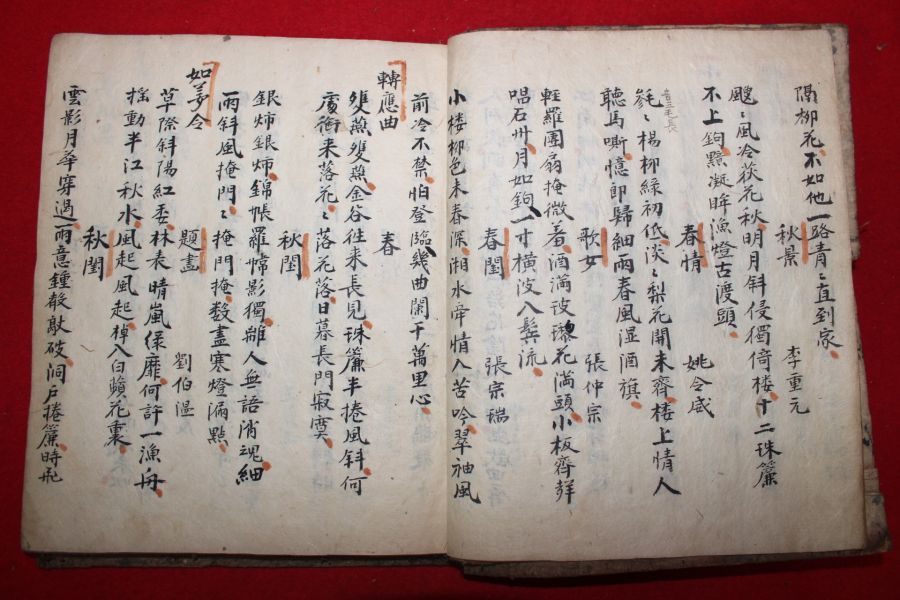 隔柳花不如他一路青〻直到家
秋景 李重元
颼〻風冷荻花秋明月斜侵獨倚楼十二珠簾
不上鉤黯凝眸漁燈古渡頭
春情 姚令威
音三毛長
毿〻楊柳綠初低淡〻梨花開未齊楼上情人
聽馬嘶憶郎歸細雨春風湿酒旗
歌女 張仲宗
輕羅團扇掩微羞酒滿玻瓈花滿頭小板齊聲
唱石州月如鉤一寸横波入鬂流
春閨 張宗瑞
小楼柳色未春深湘水牽情入苦吟翠袖風
前冷不禁怕登臨幾曲闌干萬里心
轉應曲 春
雙燕雙燕金谷徃来長見珠簾半捲風斜何
處銜来落花〻落花落日暮長門寂寞
秋閨
銀灯銀灯錦帳羅幃影獨離人無語消魂細
雨斜風掩門〻掩門掩数盡寒燈漏點
如夢令 題畫 劉伯温
草際斜陽紅委林表晴嵐綠靡何許一漁舟
揺動半江秋水風起風起棹入白蘋花裏
秋閨
雲影月華穿過雨意鍾敲破洞戶捲簾時飛